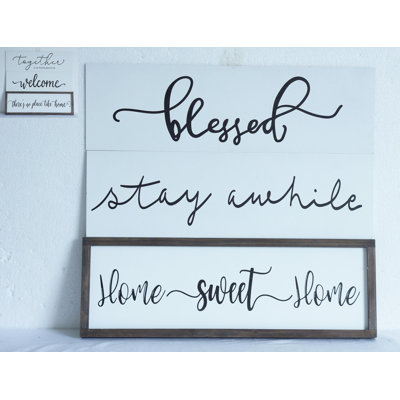 together
welcome
there's no place like home
blessed
stay awhile
Home sweet Home